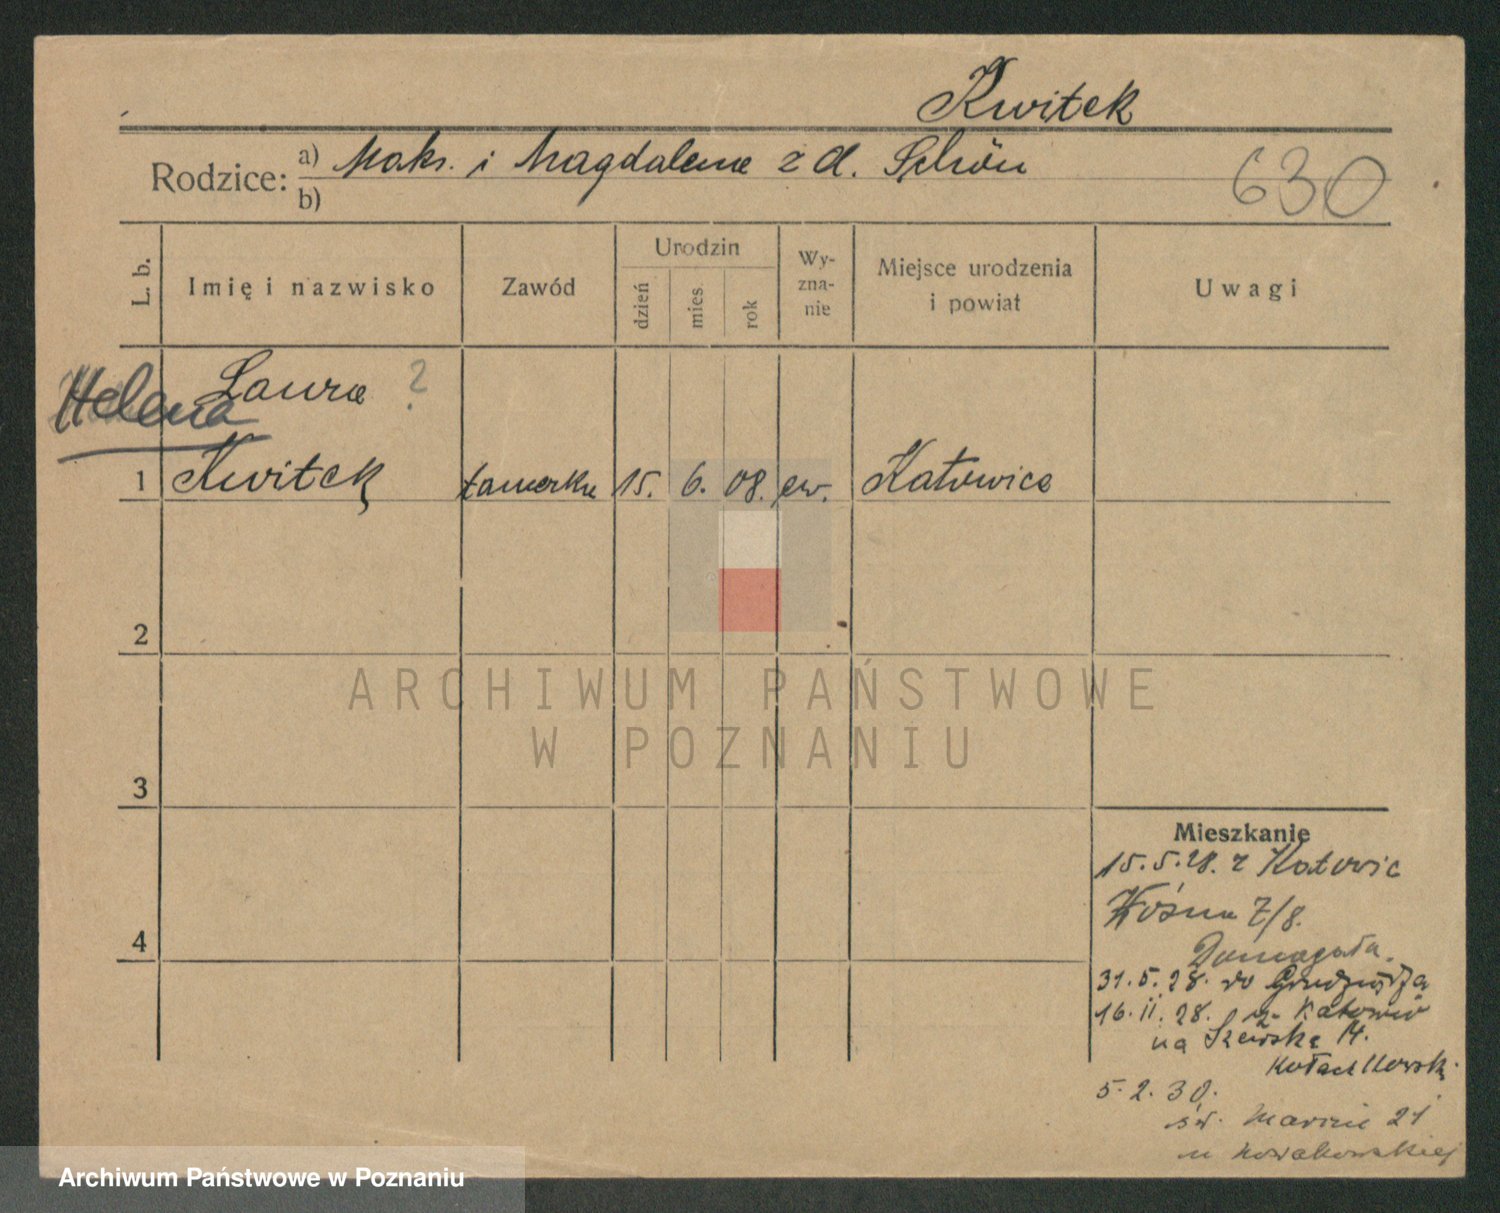 Kwitek
Rodzice: a) Maks. i Magdalena z d. Schön
b)
630
L. b.
Imię i nazwisko
Zawód
Urodzin
dzień
mies
rok
Wy-
zna-
nie
Miejsce urodzenia
i powiat
Uwagi
Laura ?
Helena
1 Kwitek 15. 6. 08. ew. Katowice
2
3
4
ARCHIWUM PAŃSTWOWE
W POZNANIU
Mieszkanie
15.5.28. z Katowic
Woźna 7/8.
Domagała.
31.5.28. do Grudziądza
16.11.28. z Katowic
na Szewską 14.
5.2.30.
św. Marcin 21
u Nowakowskiej
Archiwum Państwowe w Poznaniu